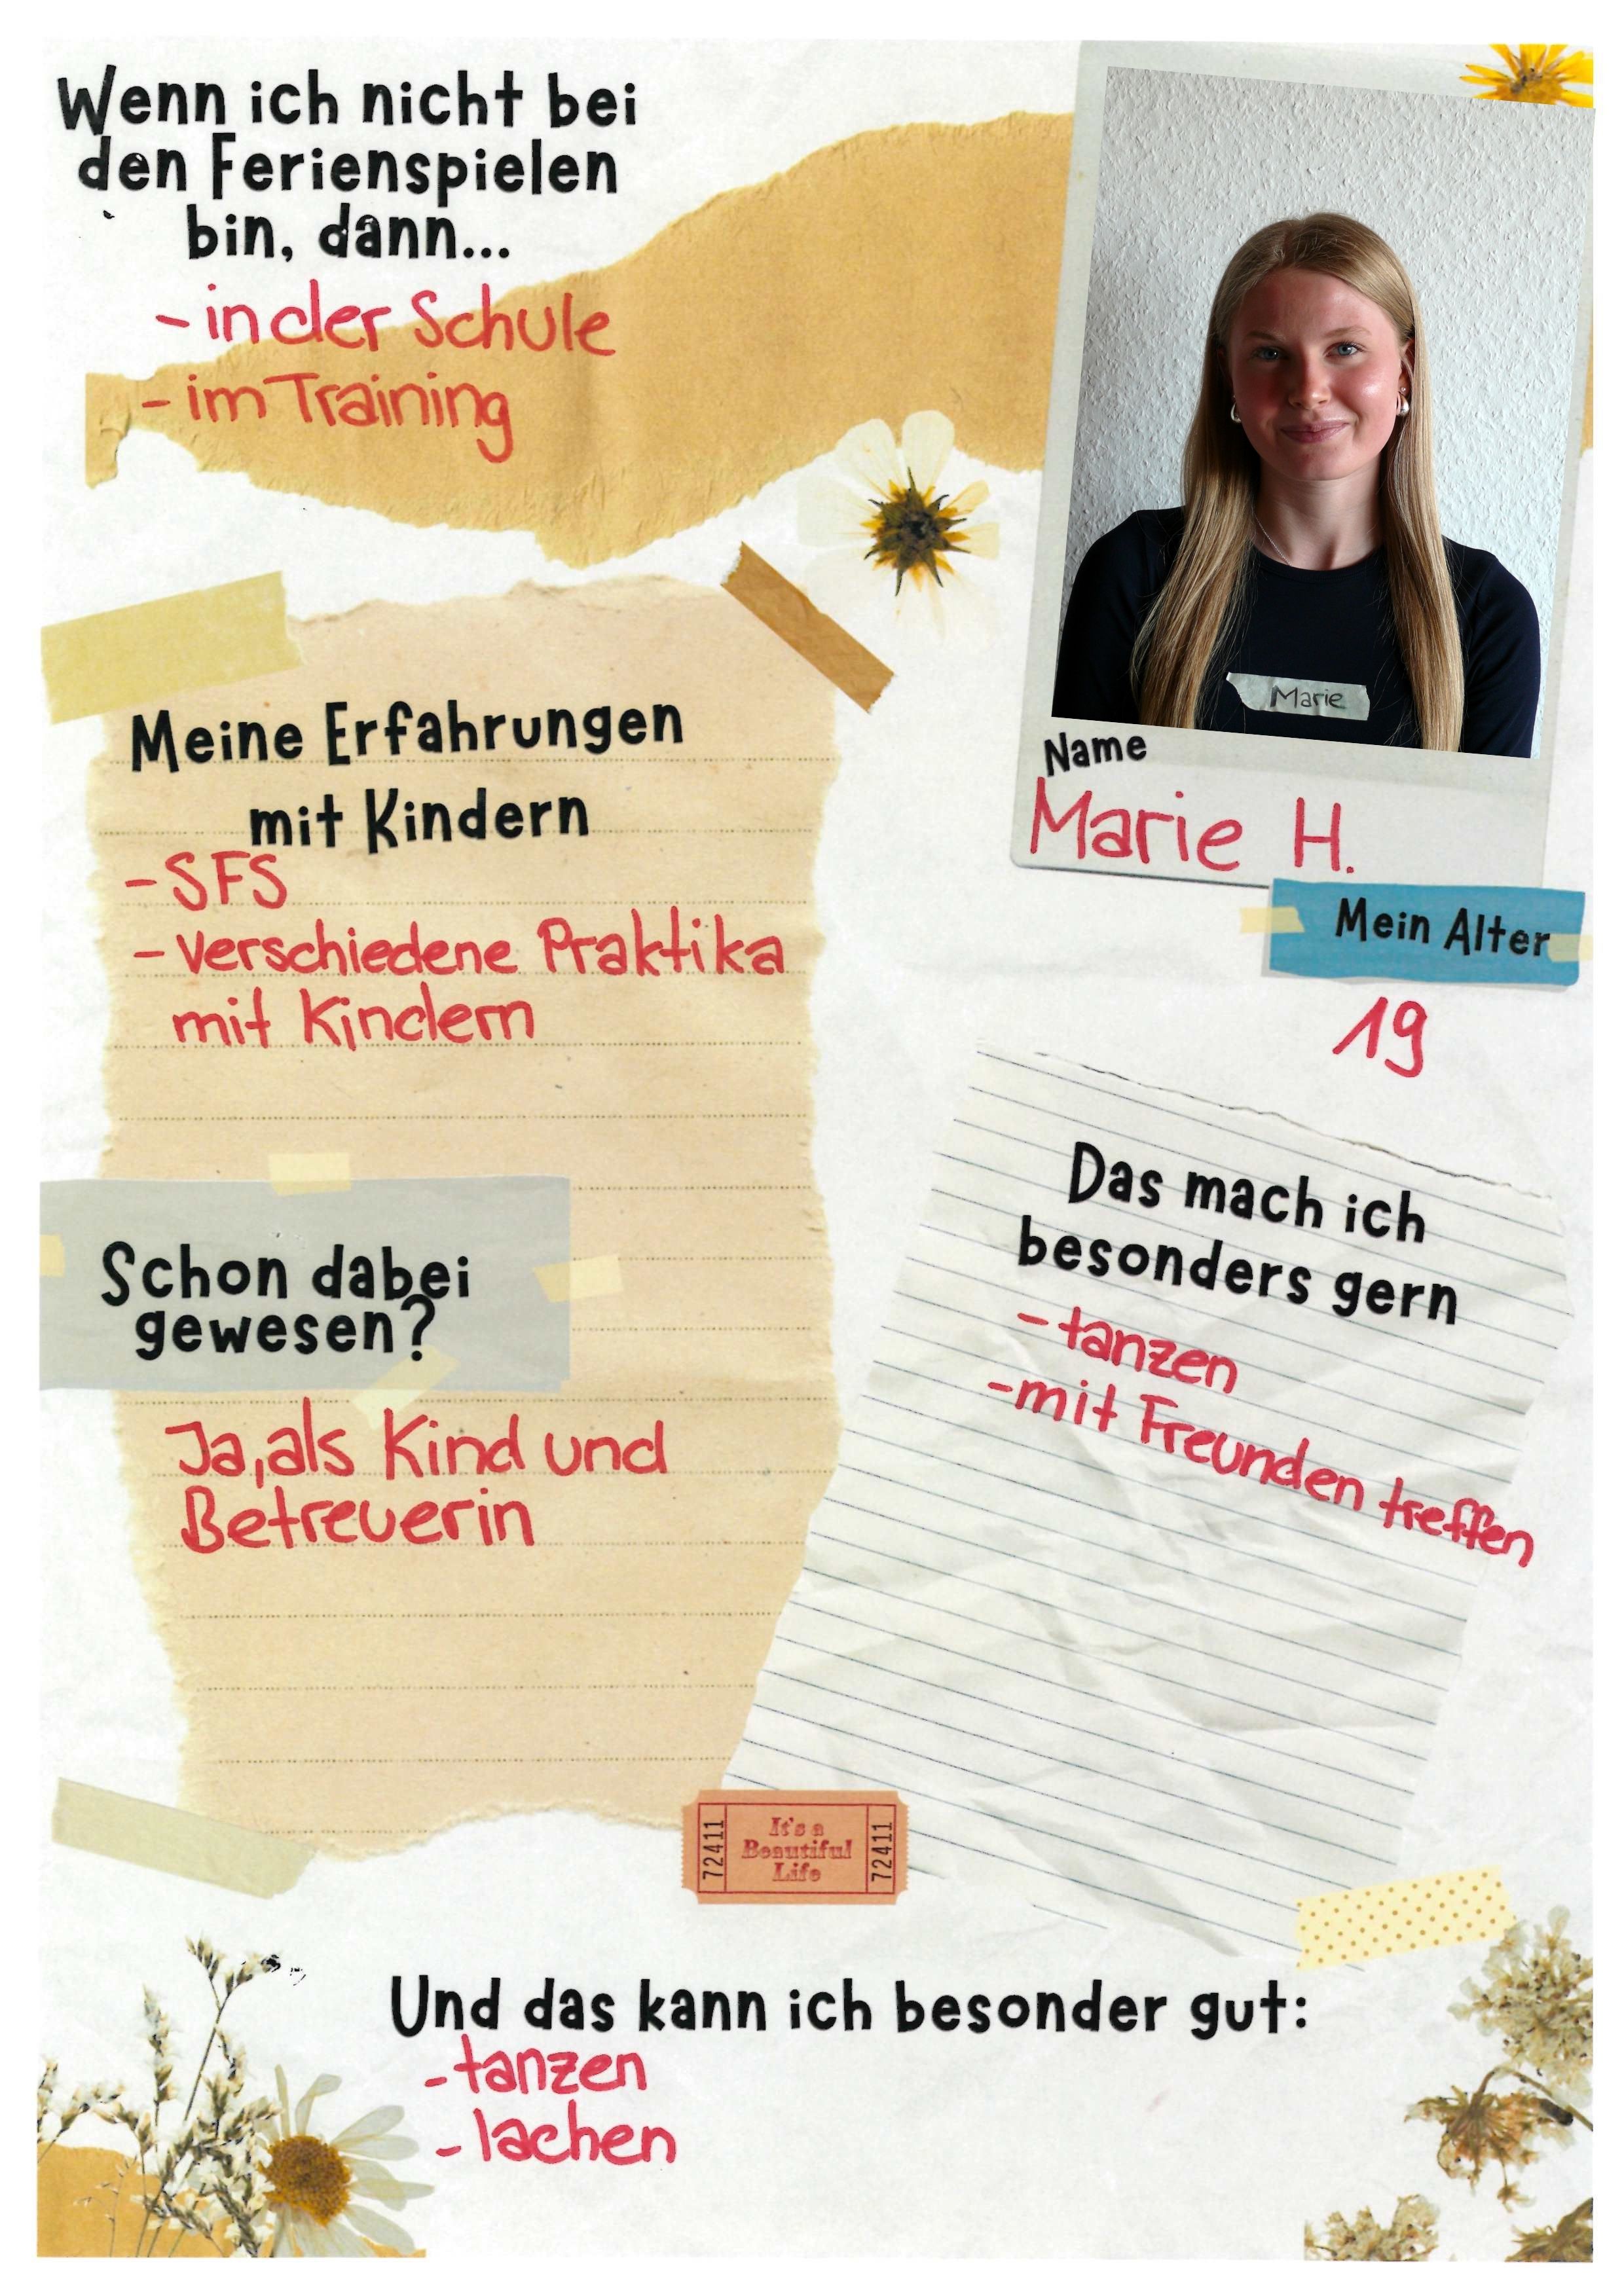 Wenn ich nicht bei
den Ferienspielen
bin, dann...
- in der Schule
- im Training
Marie
Name
Marie H.
Mein Alter
19
Meine Erfahrungen
mit Kindern
- SFS
- verschiedene Praktika
mit Kindern
Schon dabei
gewesen?
Ja, als Kind und
Betreuerin
Das mach ich
besonders gern
- tanzen
- mit Freunden treffen
72411
It's a
Beautiful
Life
72411
Und das kann ich besonder gut:
- tanzen
- lachen